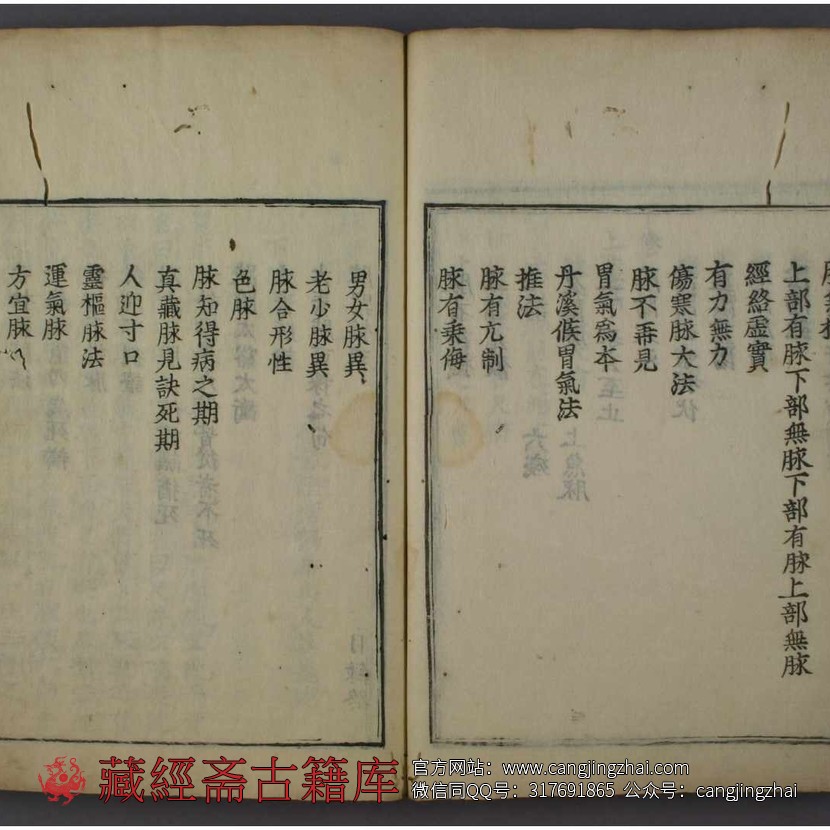 上部有脉下部無脉下部有脉上部無脉
經絡虛實
有力無力
傷寒脉大法
脉不再見
胃氣爲本
丹溪候胃氣法
推法
脉有亢制
脉有乘侮
男女脉異
老少脉異
脉合形性
色脉
脉知得病之期
真藏脉見訣死期
人迎寸口
靈樞脉法
運氣脉
方宜脉
藏經斋古籍库
官方网站：www.cangjingzhai.com
微信同QQ号：317691865 公众号：cangjingzhai